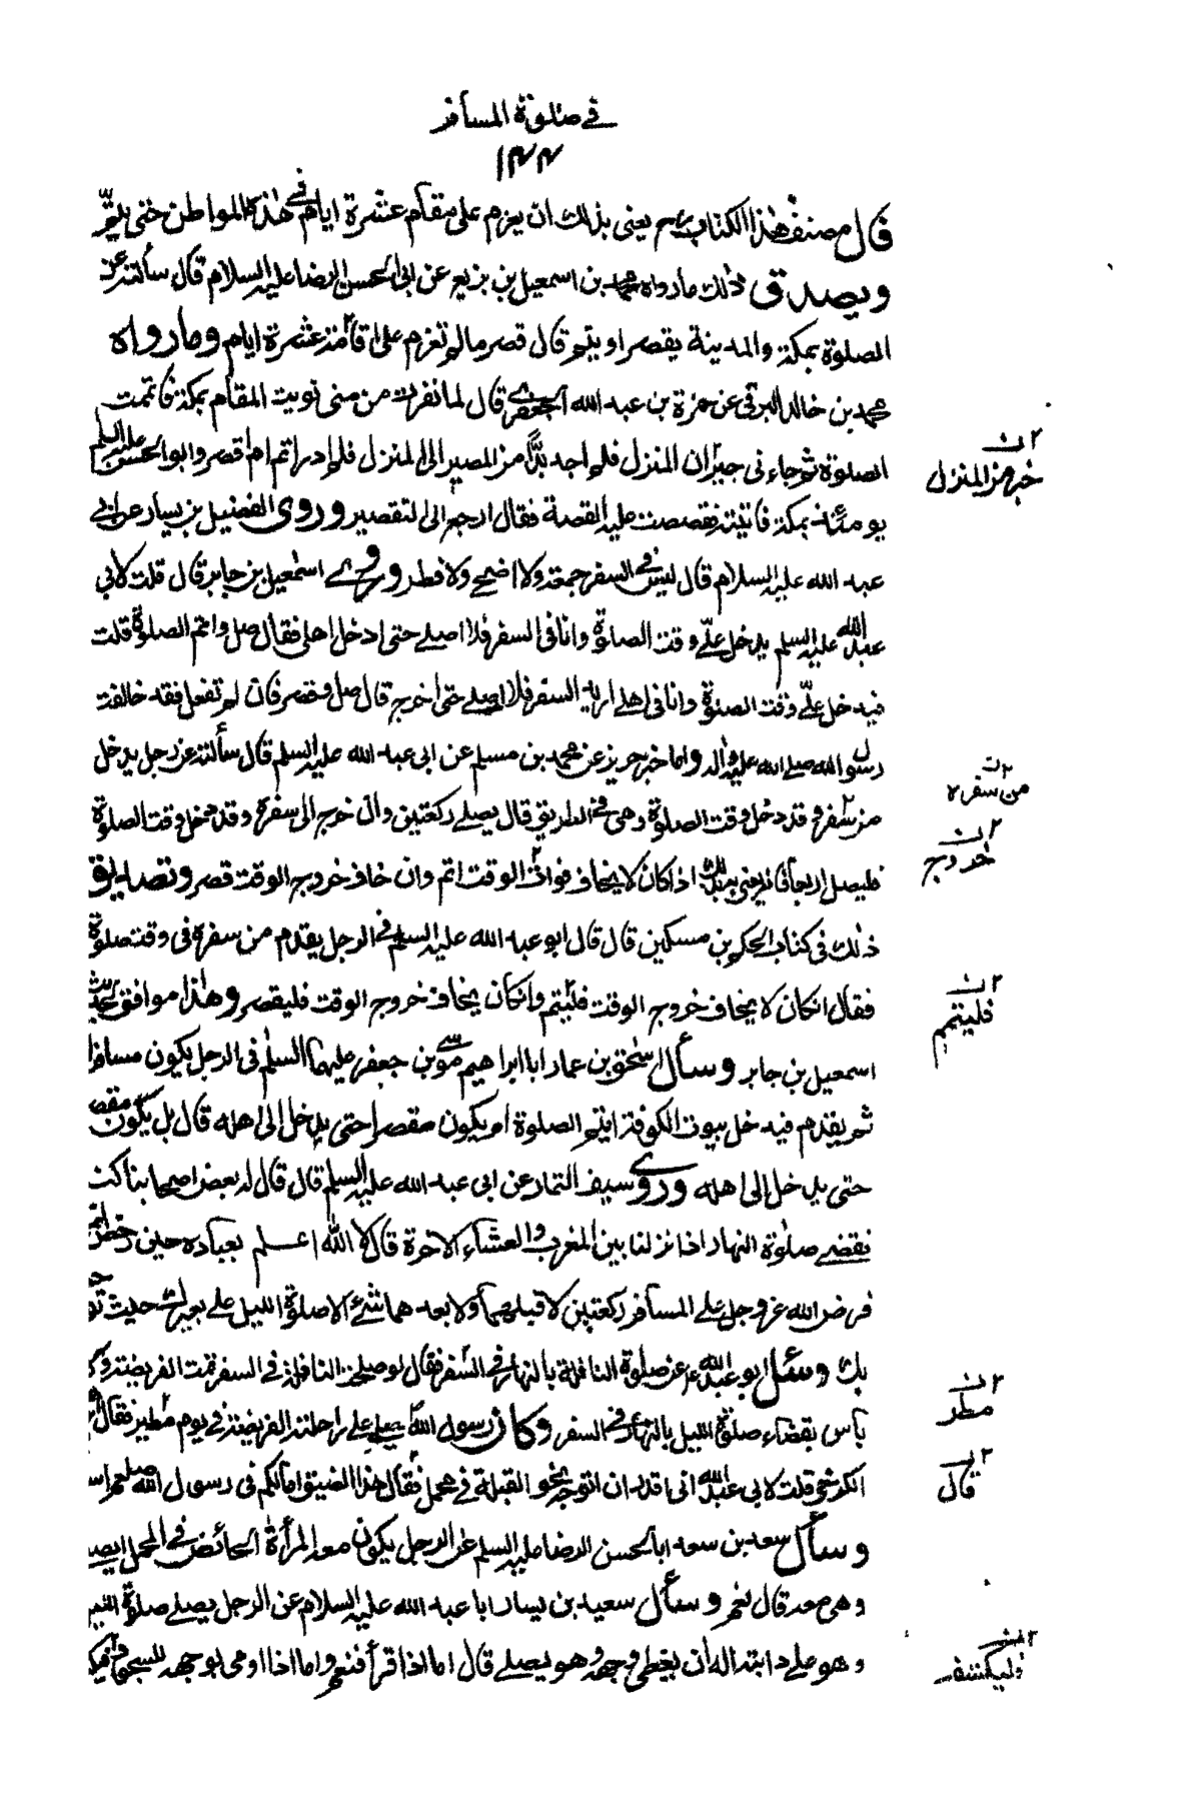 في صلوة المسافر
١٣٣
قال مصنف هذا الكتاب يعنى بذلك ان يعزم على مقام عشرة ايام في هذه المواطن حتى يتم
ويصدق ذلك مارواه محمد بن اسمعيل بن بزيع عن ابى الحسن الرضا عليه السلام قال سألته عن
الصلوة بمكة والمدينة يقصر او يتم قال قصر مالم تعزم على اقامة عشرة ايام ومارواه
محمد بن خالد البرقى عن حمزة بن عبد الله الجعفرى قال لما نفرت من منى نويت المقام بمكة فاتممت
الصلوة ثم جاءنى خبر من المنزل فلم اجد بدًّا من المصير الى المنزل فلم ادر اتم ام اقصر وابو الحسن عليه السلم
يومئذ بمكة فاتيته فقصصت عليه القصة فقال ارجع الى التقصير وروى الفضيل بن يسار عن ابى
عبد الله عليه السلام قال ليس في السفر جمعة ولا اضحى ولا فطر وروى اسمعيل بن جابر قال قلت لابى
عبد الله عليه السلم يدخل علىّ وقت الصلوة وانا في السفر فلا اصلى حتى ادخل اهلى فقال صل واتم الصلوة قلت
فيدخل علىّ وقت الصلوة وانا في اهلى اريد السفر فلا اصلى حتى اخرج قال صل وقصر فان لم تفعل فقد خالفت
رسول الله صلى الله عليه واله واما خبر حريز عن محمد بن مسلم عن ابى عبد الله عليه السلم قال سألته عن رجل يدخل
من سفره وقد دخل وقت الصلوة وهى في الطريق قال يصلى ركعتين وان خرج الى سفره وقد دخل وقت الصلوة
فليصل اربعًا فانه يعنى بذلك اذا كان لا يخاف فوات الوقت اتم وان خاف خروج الوقت قصر وتصديق
ذلك في كتاب الحكم بن مسكين قال قال ابو عبد الله عليه السلم في الرجل يقدم من سفره في وقت صلوة
فقال ان كان لا يخاف خروج الوقت فليتم وان كان يخاف خروج الوقت فليقصر وهذا موافق لحديث
اسمعيل بن جابر وسأل اسحق بن عمار ابا ابراهيم موسى بن جعفر عليهما السلم في الرجل يكون مسافرا
ثم يقدم فيدخل بيوت الكوفة ايتم الصلوة ام يكون مقصرا حتى يدخل الى اهله قال بل يكون مقصرا
حتى يدخل الى اهله وروى سيف التمار عن ابى عبد الله عليه السلم قال قال له بعض اصحابنا كنا
نقضى صلوة النهار اذا نزلنا بين المغرب والعشاء الاخرة قال لا الله اعلم بعباده حين رخص لهم
فرض الله عز وجل على المسافر ركعتين لا قبلهما ولا بعدهما شئ الا صلوة الليل على بعيرك حيث توجه
بك وسئل ابو عبد الله عن صلوة النافلة بالنهار في السفر فقال لو صلحت النافلة في السفر تمت الفريضة ولا
بأس بقضاء صلوة الليل بالنهار في السفر وكان رسول الله يصلى على راحلته الفريضة في يوم مطير فقال ابراهيم
الكرخى قلت لابى عبد الله انى اقدر ان اتوجه نحو القبلة في محمل فقال هذا الضيق اما لكم في رسول الله صلعم اسوة
وسأل سعد بن سعد ابا الحسن الرضا عليه السلم عن الرجل يكون معه المرأة الحائض في المحمل ايصلى
وهى معه قال نعم وسأل سعيد بن يسار ابا عبد الله عليه السلام عن الرجل يصلى صلوة الليل
وهو على دابته اله ان يغطى وجهه وهو يصلى قال اما اذا قرأ فنعم واما اذا اومى بوجهه للسجود فليكشفه
خبر من المنزل
من سفره
خروج
فليتمم
مطر
قال
وليكشفه